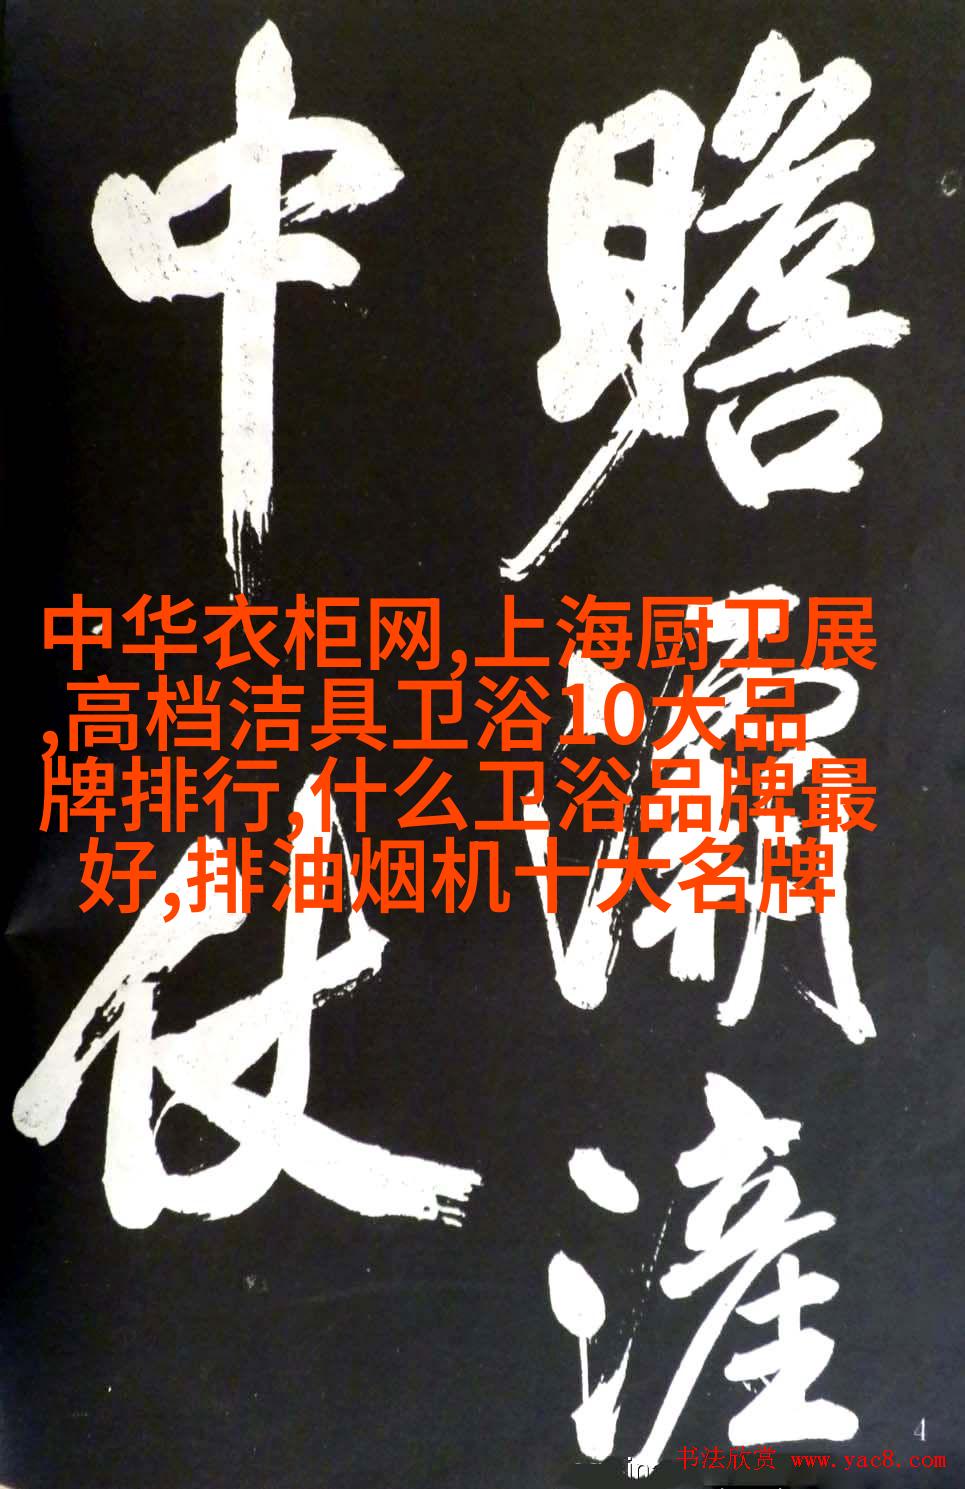 中华衣柜网,上海厨卫展
,高档洁具卫浴10大品
牌排行,什么卫浴品牌最
好,排油烟机十大名牌
瞻灞浐
中仗
4
书法欣赏 www.yac8.com